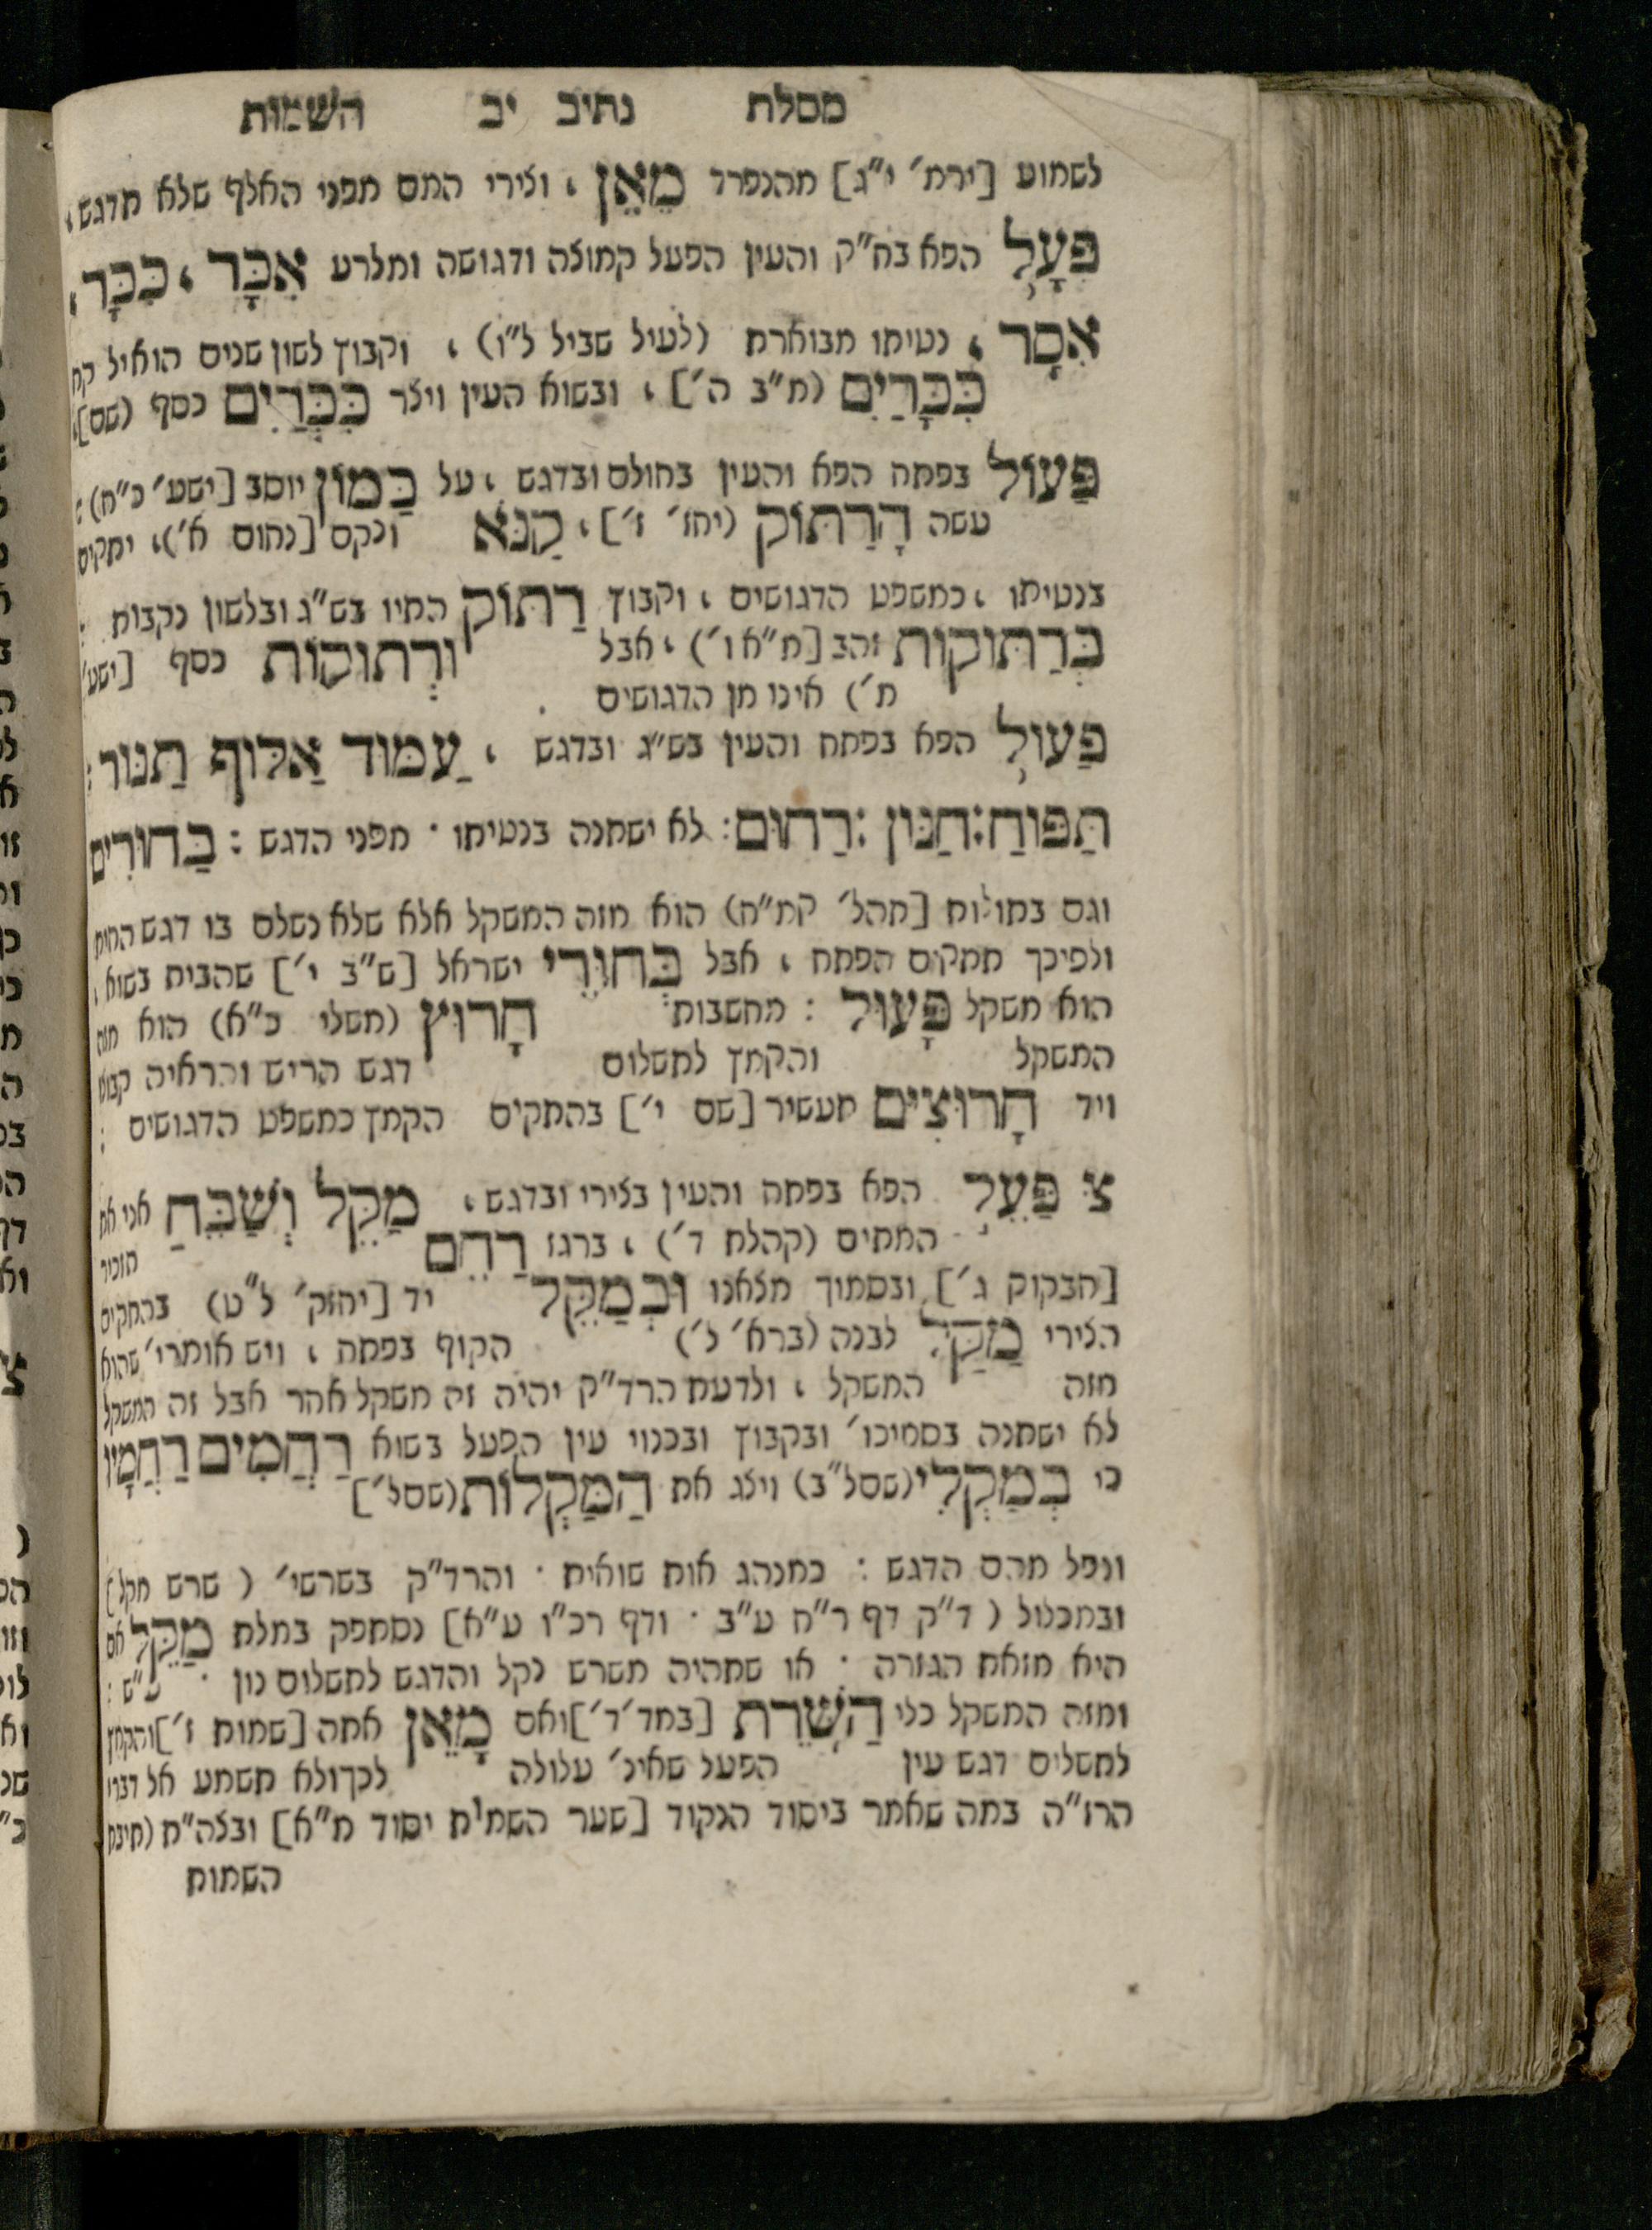 מסלת נתיב יב השמות
לשמוע [ירמ׳ י״ג] מהנפרד מֵאֵן , וצירי המם מפני האלף שלא תדגש ,
פִּעָל הפא בח״ק והעין הפעל קמוצה ודגושה ומלרע אִכָּר , כִּכָּר ,
אִסָר , נטיתו מבוארת (לעיל שביל ל״ו) , וקבוץ לשון שנים הואיל קח
כִּכָּרַיִם (מ״ב ה׳] , ובשוא העין ויצר כִּכְּרַיִם כסף (שם],
פַּעוֹל בפתח הפא והעין בחולם ובדגש , על כַּמוֹן יוסב [ישע׳ כ״ח) :
עשה הָרַתּוֹק (יחז׳ ז׳] , קַנּוֹא ונקם [נחום א׳), יתקים
בנטיתו , כמשפט הדגושים , וקבוץ רַתּוֹק התיו בש״ג ובלשון נקבות :
בְּרַתּוּקוֹת זהב [מ״א ו׳) , אבל וּרְתוּקוֹת כסף [ישע׳
מ׳) אינו מן הדגושים .
פַּעוּל הפא בפתח והעין בש״ג ובדגש , עַמּוּד אַלּוּף תַּנּוּר :
תַּפּוּחַ : חַנּוּן : רַחוּם : לא ישתנה בנטיתו · מפני הדגש : בַּחוּרִים
וגם בתולות [תהל׳ קמ״ח) הוא מזה המשקל אלא שלא נשלם בו דגש החית
ולפיכך תתקים הפתח , אבל בְּחוּרֵי ישראל [ש״ב י׳] שהבית בשוא ,
הוא משקל פָּעוּל : מחשבות חָרוּץ (משלי כ״א) הוא מזה
המשקל והקמץ לתשלום דגש הריש והראיה קבוצו
ויד חָרוּצִים תעשיר [שם י׳] בהתקים הקמץ כמשפט הדגושים :
צ פַּעֵל הפא בפתח והעין בצירי ובדגש , מַקֵּל וְשַׁבֵּחַ אני את
המתים (קהלת ד׳) , ברגז רַחֵם תזכור
[חבקוק ג׳] ובסמוך מצאנו וּבְמַקֵּל יד [יחזק׳ ל״ט) בהתקים
הצירי מַקַּל לבנה (ברא׳ ל׳) הקוף בפתח , ויש אומרי׳ שהוא
מזה המשקל , ולדעת הרד״ק יהיה זה משקל אחר אבל זה המשקל
לא ישתנה בסמיכו׳ ובקבוץ ובכנוי עין הפעל בשוא רַחֲמִים רַחֲמָיו
כי בְמַקְלִי (שם ל״ב) ויצג את הַמַּקְלוֹת (שם ל׳]
ונפל מהם הדגש : כמנהג אות שואית · והרד״ק בשרשי׳ ( שרש מקל]
ובמכלול ( ד״ק דף ר״ח ע״ב · ודף רכ״ו ע״א] נסתפק במלת מַקֵּל אם
היא מזאת הגזרה · או שתהיה משרש נקל והדגש לתשלום נון · ע״ש :
ומזה המשקל כלי הַשָּׁרֵת [במד׳ ד׳] ואם מָאֵן אתה [שמות ז׳] והקמץ
לתשלום דגש עין הפעל שאינ׳ עלולה לכך ולא תשמע אל דברי
הרז״ה במה שאמר ביסוד הנקוד [שער השמות יסוד מ״א] ובצה״ת (תיבת
השמות